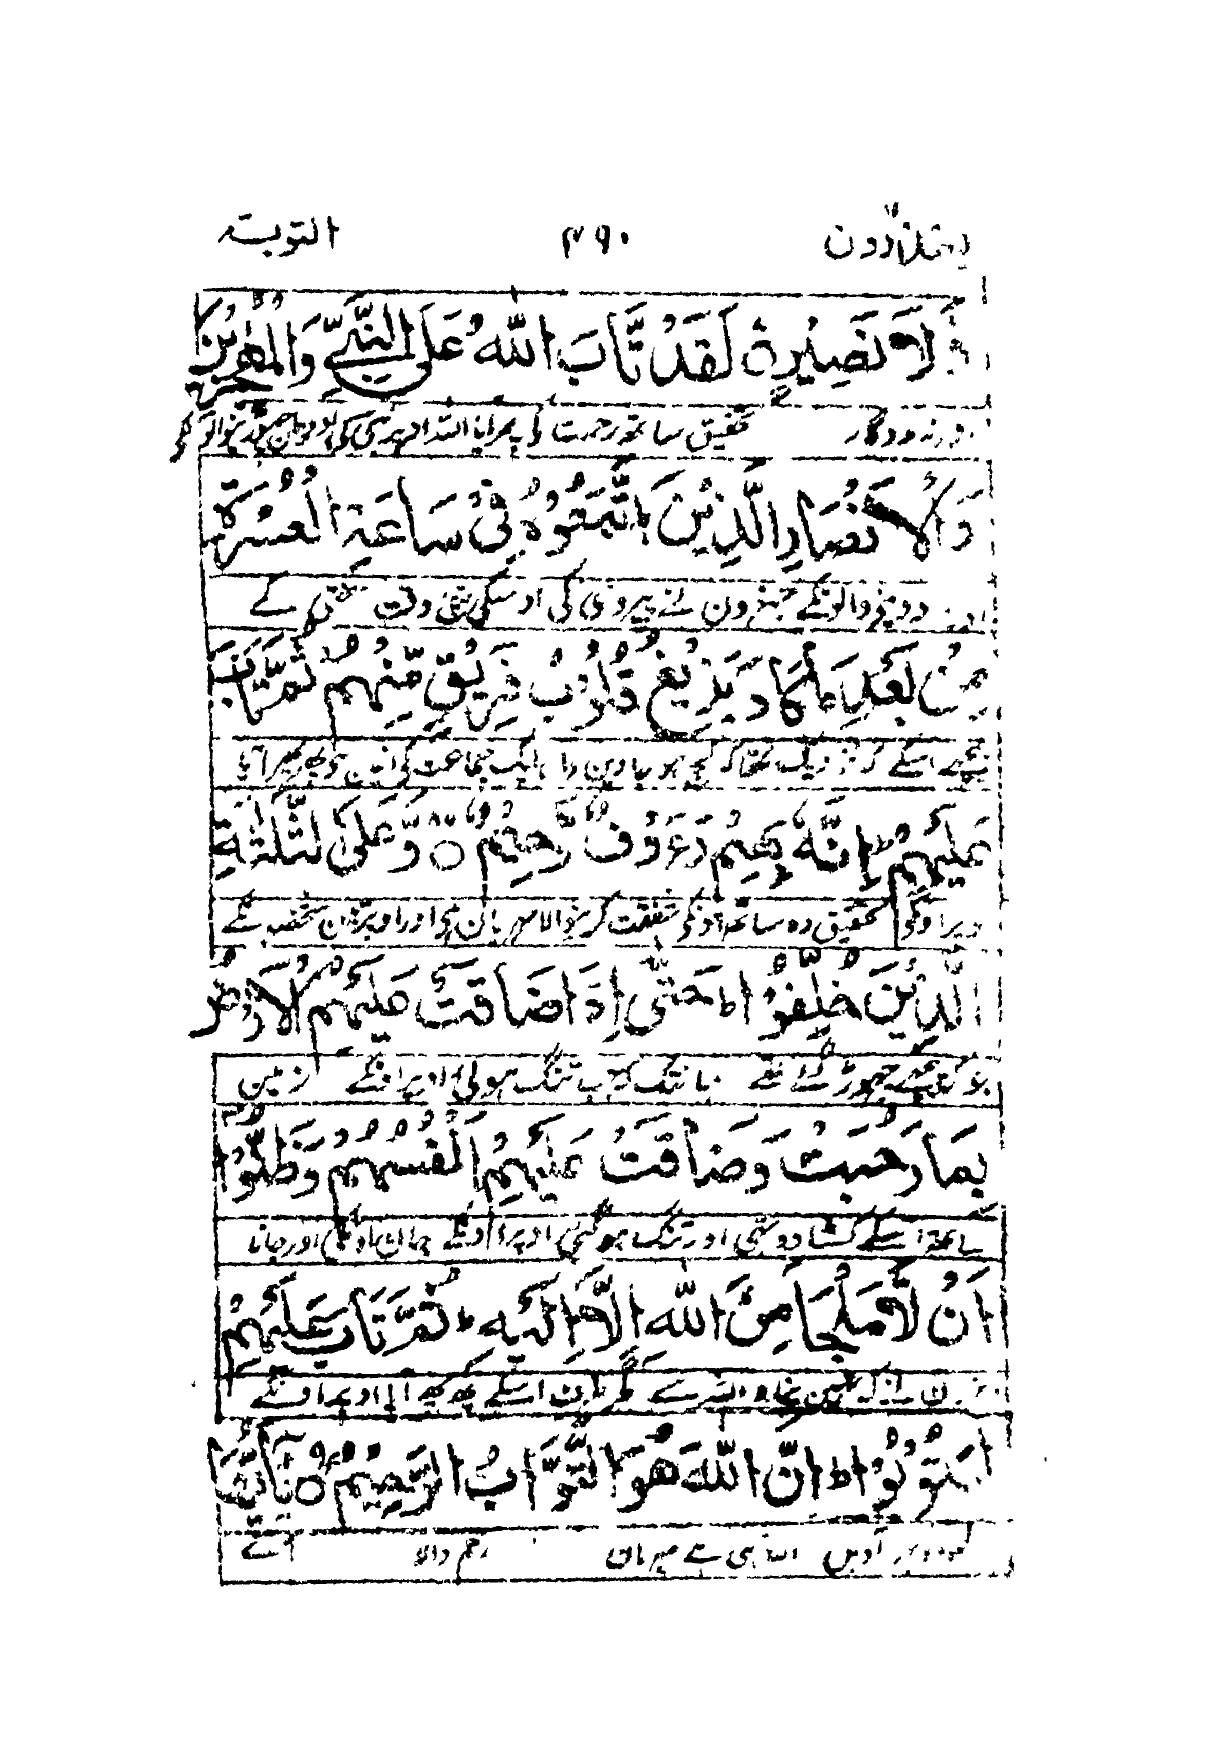 یعتذرون ۱۱ ۳۹۰ التوبة
وَّلَا نَصِيْرٍ ○ لَقَدْ تَّابَ اللّٰهُ عَلَى النَّبِيِّ وَالْمُهٰجِرِيْنَ
اور نہ مددگار تحقیق ساتھ رحمت کے پھر آیا اللہ اوپر نبی کے
وَالْاَنْصَارِ الَّذِيْنَ اتَّبَعُوْهُ فِيْ سَاعَةِ الْعُسْرَةِ
اور مدد دینے والونکے جنہون نے پیروی کی اوسکی بیچ وقت سختی کے
مِنْۢ بَعْدِ مَا كَادَ يَزِيْغُ قُلُوْبُ فَرِيْقٍ مِّنْهُمْ ثُمَّ تَابَ
پیچھے اسکے کہ نزدیک تھا کہ کج ہو جاوین دل ایک جماعت کے انمین سے پھر پھر آیا
عَلَيْهِمْ ط اِنَّهٗ بِهِمْ رَءُوْفٌ رَّحِيْمٌ ○ وَّعَلَى الثَّلٰثَةِ
اوپر اونکے تحقیق وہ ساتھ اونکے شفقت کرنیوالا مہربان ہی اور اوپر تین شخصونکے
الَّذِيْنَ خُلِّفُوْا ط حَتّٰى اِذَا ضَاقَتْ عَلَيْهِمُ الْاَرْضُ
جو کہ پیچھے چھوڑے گئے تھے یہانتک کہ جب تنگ ہوئی اوپر اونکے زمین
بِمَا رَحُبَتْ وَضَاقَتْ عَلَيْهِمْ اَنْفُسُهُمْ وَظَنُّوْا
ساتھ اسکے کہ کشادہ تھی اور تنگ ہو گئی اوپر اونکے جان اونکی اور جانا
اَنْ لَّا مَلْجَاَ مِنَ اللّٰهِ اِلَّا اِلَيْهِ ط ثُمَّ تَابَ عَلَيْهِمْ
اونہون نے کہ نہین پناہ اللہ سے مگر طرف اسکے پھر پھر آیا اوپر اونکے
لِيَتُوْبُوْا ط اِنَّ اللّٰهَ هُوَ التَّوَّابُ الرَّحِيْمُ ○ يٰٓاَيُّهَا
آوین اللہ ہی ہے مہربان رحم والا اے